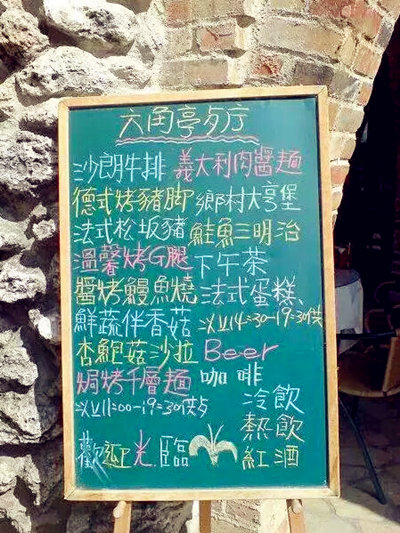 六角亭歺厅
沙朗牛排 義大利肉醬麵
德式烤豬脚 鄉村大亨堡
法式松坂豬 鮭魚三明治
溫馨烤G腿 下午茶
醬烤鰻魚燒 法式蛋糕、
鮮蔬伴香菇 以上14:30-19:30供
杏鮑菇沙拉 Beer
焗烤千層麵 咖啡
以上11:00-19:30供歺
冷飲
熱飲
歡迎光臨 紅酒